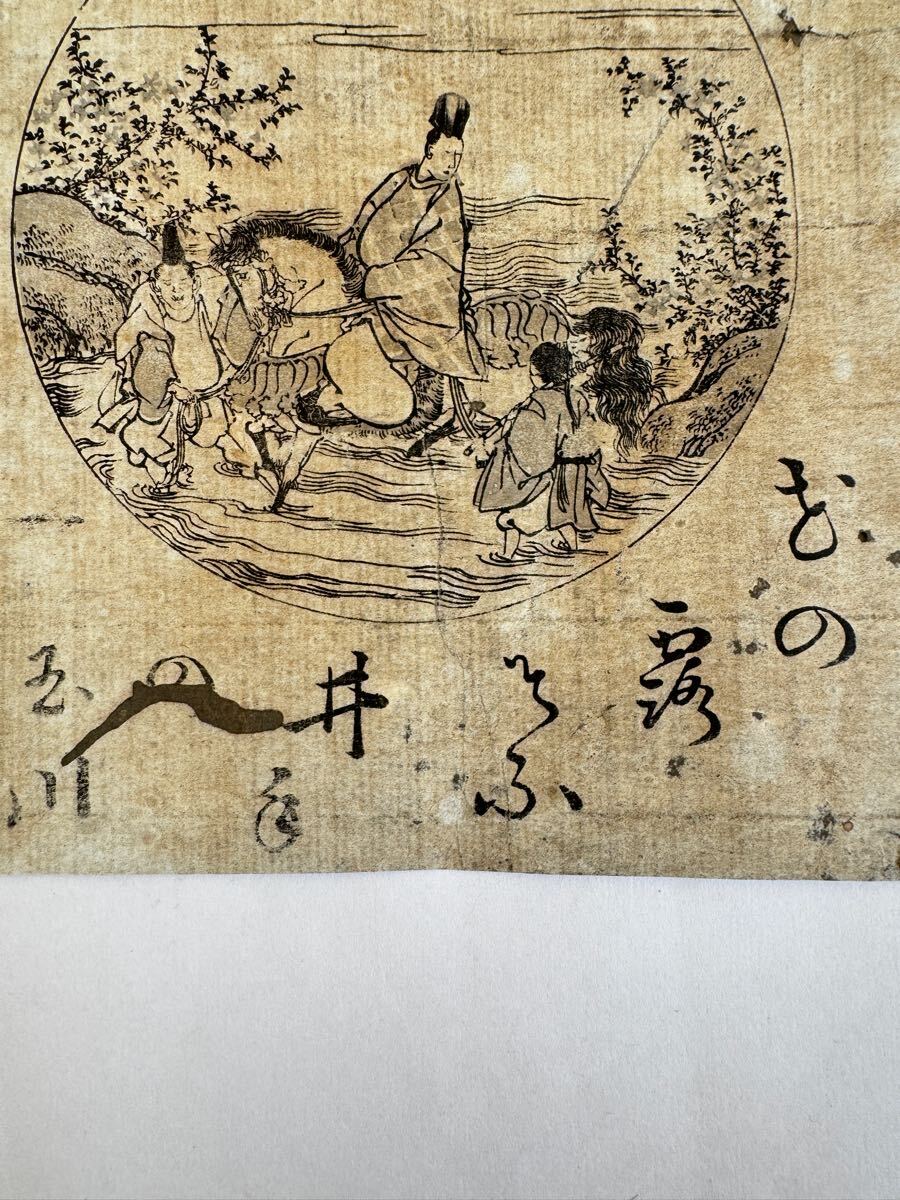 花の
露
そふ
井手
の
玉川